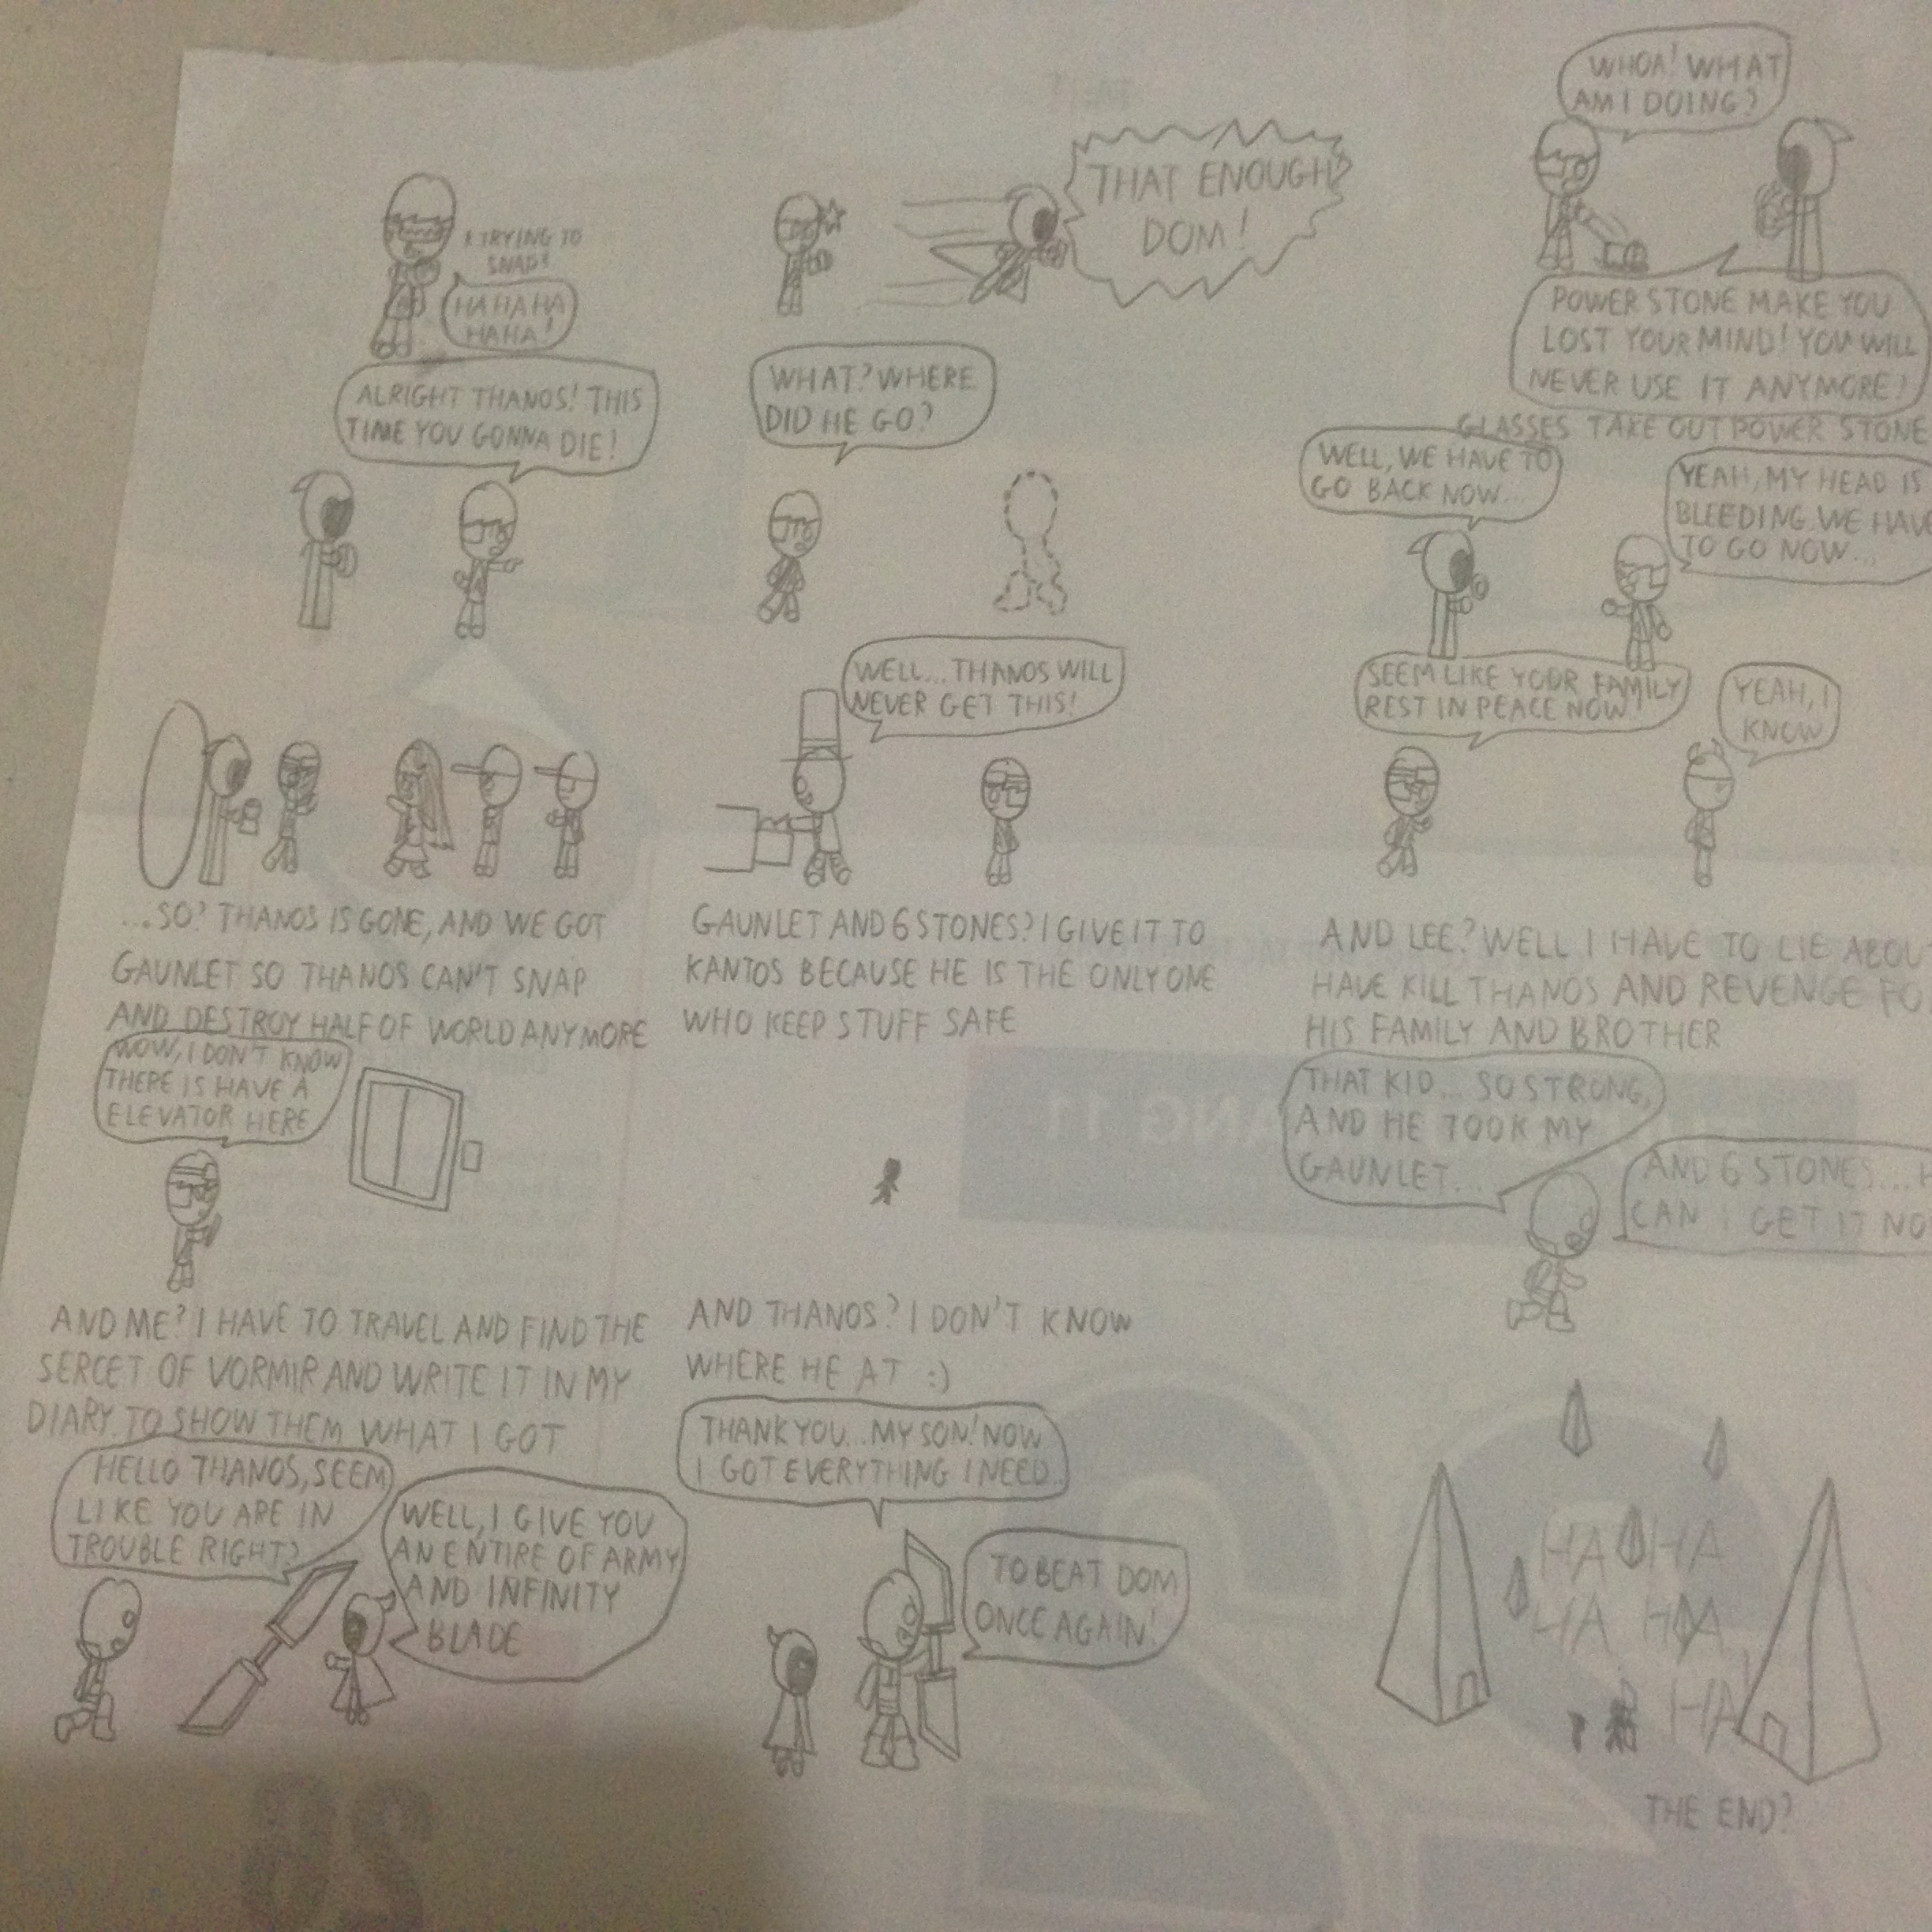 *TRYING TO
SNAP*
HA HA HA
HAHA!
THAT ENOUGH
DOM!
WHOA! WHAT
AM I DOING?
POWER STONE MAKE YOU
LOST YOUR MIND! YOU WILL
NEVER USE IT ANYMORE!
GLASSES TAKE OUT POWER STONE
ALRIGHT THANOS! THIS
TIME YOU GONNA DIE!
WHAT? WHERE
DID HE GO?
WELL, WE HAVE TO
GO BACK NOW...
YEAH, MY HEAD IS
BLEEDING. WE HAVE
TO GO NOW...
WELL... THANOS WILL
NEVER GET THIS!
SEEM LIKE YOUR FAMILY
REST IN PEACE NOW
YEAH, I
KNOW
...SO? THANOS IS GONE, AND WE GOT
GAUNLET SO THANOS CAN'T SNAP
AND DESTROY HALF OF WORLD ANYMORE
GAUNLET AND 6 STONES? I GIVE IT TO
KANTOS BECAUSE HE IS THE ONLY ONE
WHO KEEP STUFF SAFE
AND LEE? WELL I HAVE TO LIE ABOU
HAVE KILL THANOS AND REVENGE FO
HIS FAMILY AND BROTHER
WOW, I DON'T KNOW
THERE IS HAVE A
ELEVATOR HERE
THAT KID... SO STRONG,
AND HE TOOK MY
GAUNLET...
AND 6 STONES... H
CAN I GET IT NO
AND ME? I HAVE TO TRAVEL AND FIND THE
SERCET OF VORMIR AND WRITE IT IN MY
DIARY. TO SHOW THEM WHAT I GOT
AND THANOS? I DON'T KNOW
WHERE HE AT :)
HELLO THANOS, SEEM
LIKE YOU ARE IN
TROUBLE RIGHT?
WELL, I GIVE YOU
AN ENTIRE OF ARMY
AND INFINITY
BLADE
THANK YOU... MY SON! NOW
I GOT EVERYTHING I NEED.
TO BEAT DOM
ONCE AGAIN!
HA HA
HA HA
HA
THE END?